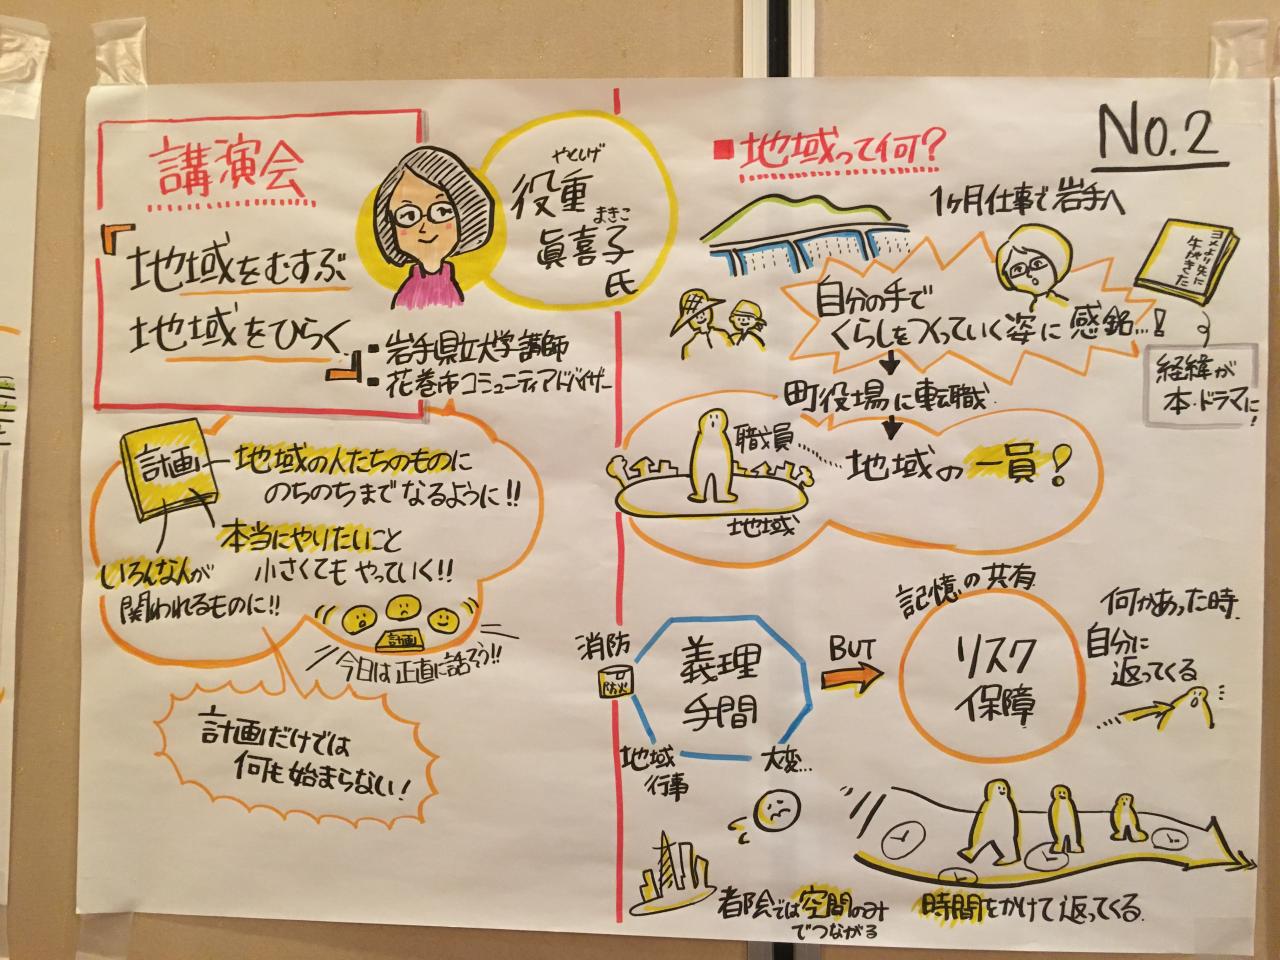 講演会
地域をむすぶ
地域をひらく
やえしげ
役重
まきこ
眞喜子
氏
・岩手県立大学講師
・花巻市コミュニティアドバイザー
計画
地域の人たちのものに
のちのちまでなるように!!
本当にやりたいこと
小さくてもやっていく!!
いろんな人が
関われるものに!!
計画
今日は正直に話そう!!
計画だけでは
何も始まらない!
No.2
■地域って何?
1ヶ月仕事で岩手へ
自分の手で
くらしをつくっていく姿に感銘...!
ヨメより先に
牛がきた
経緯が
本・ドラマに!
町役場に転職
職員......地域の一員!
地域
消防
防火
義理
手間
地域
行事
大変...
BUT
記憶の共有
リスク
保障
何かあった時
自分に
返ってくる
都会では空間のみ
でつながる
時間をかけて返ってくる